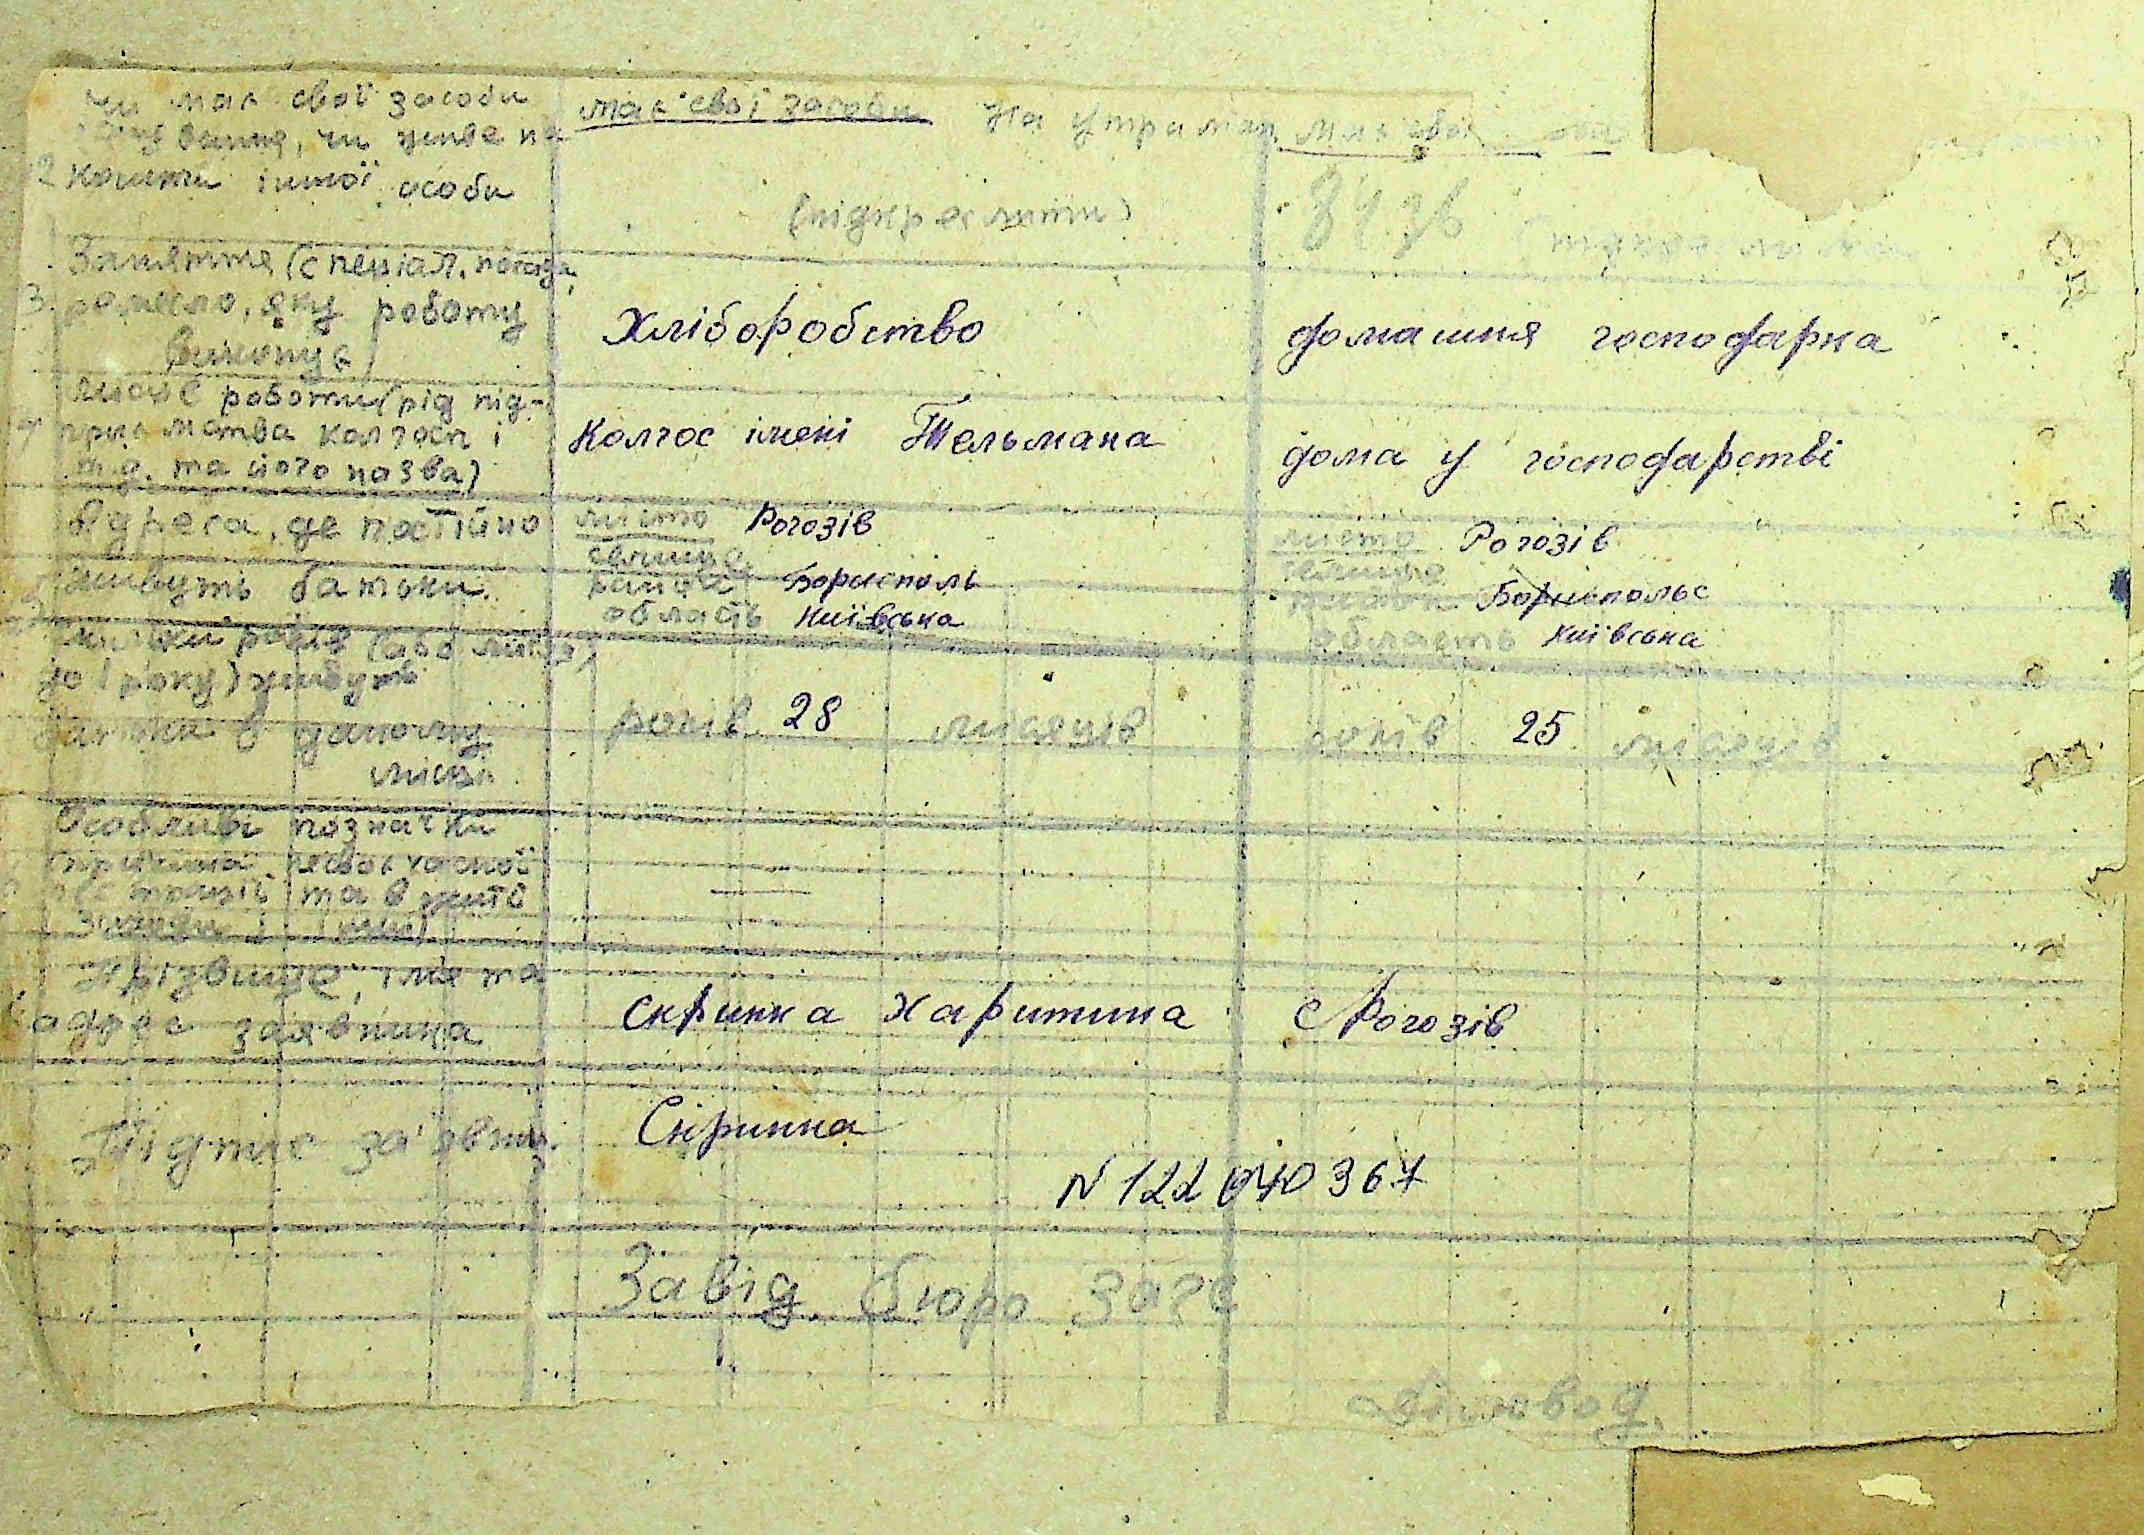 Чи має свої засоби
має свої засоби На утриман має свої
вання, чи живе на
2 кошти іншої особи
(підкреслити)
Заняття (спеціал. посада,
3. ремесло, яку роботу
виконує)
Хліборобство
домашня господарка
місце роботи (рід під-
приємства колгосп і
т.д. та його назва)
Колгос імені Тельмана
дома у господарстві
Адреса, де постійно
живуть батьки.
місто Рогозів
селище
район Бориспіль
область Київська
місто Рогозів
селище
район Бориспольс
область Київська
Скільки років (або місяц.
до 1 року) живуть
батьки в даному
місці
років 28 місяців
років 25 місяців
Особливі позначки
(причина несвоєчасної
реєстрації та вжиті
заходи і інші)
Прізвище, імя та
адрес заявника
Скринка Харитина с Рогозів
Підпис за'явн.
Скринка
N 122 040367
Завід. бюро загс
Діловод.